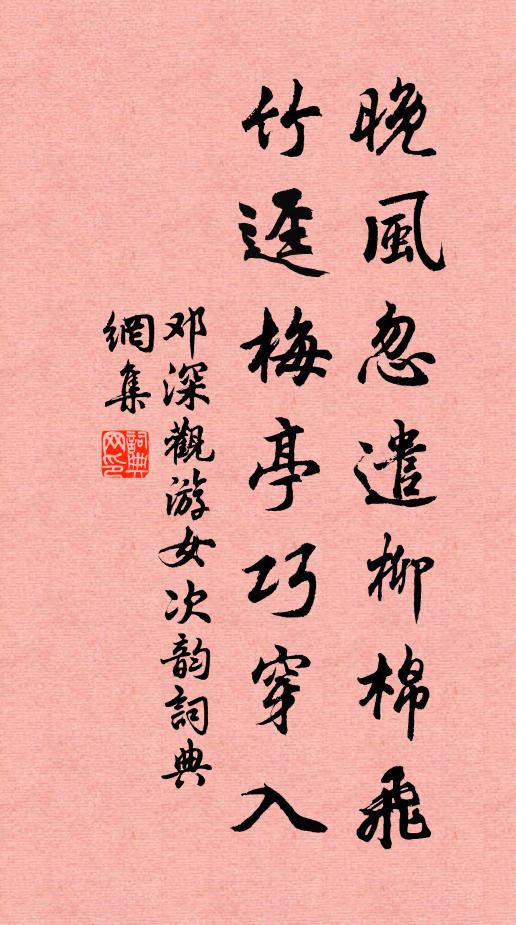 晚風忽遣柳棉飛
竹逕梅亭巧穿入
邓深觀游女次韵詞典
網集
詞典
网印